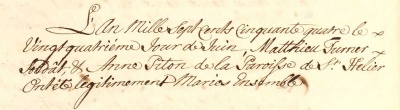 L'An Mille Sept Cents Cinquante quatre le
Vingt quatriéme Jour de Juin, Matthieu Turner
Soldat, & Anne Piton de la Paroisse de St. Helier
Ont éte legitimement Mariés Ensemble